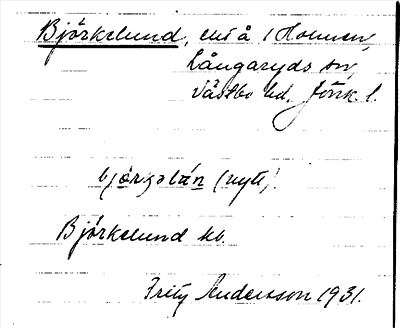 Björkelund, ent å 1 Holmen,
Långaryds sn,
Västbo hd, Jönk. l.
(nytt).
Björkelund kb.
Fritz Andersson 1931.